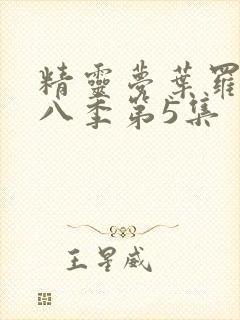 精靈夢葉羅
八季第5集
王星威